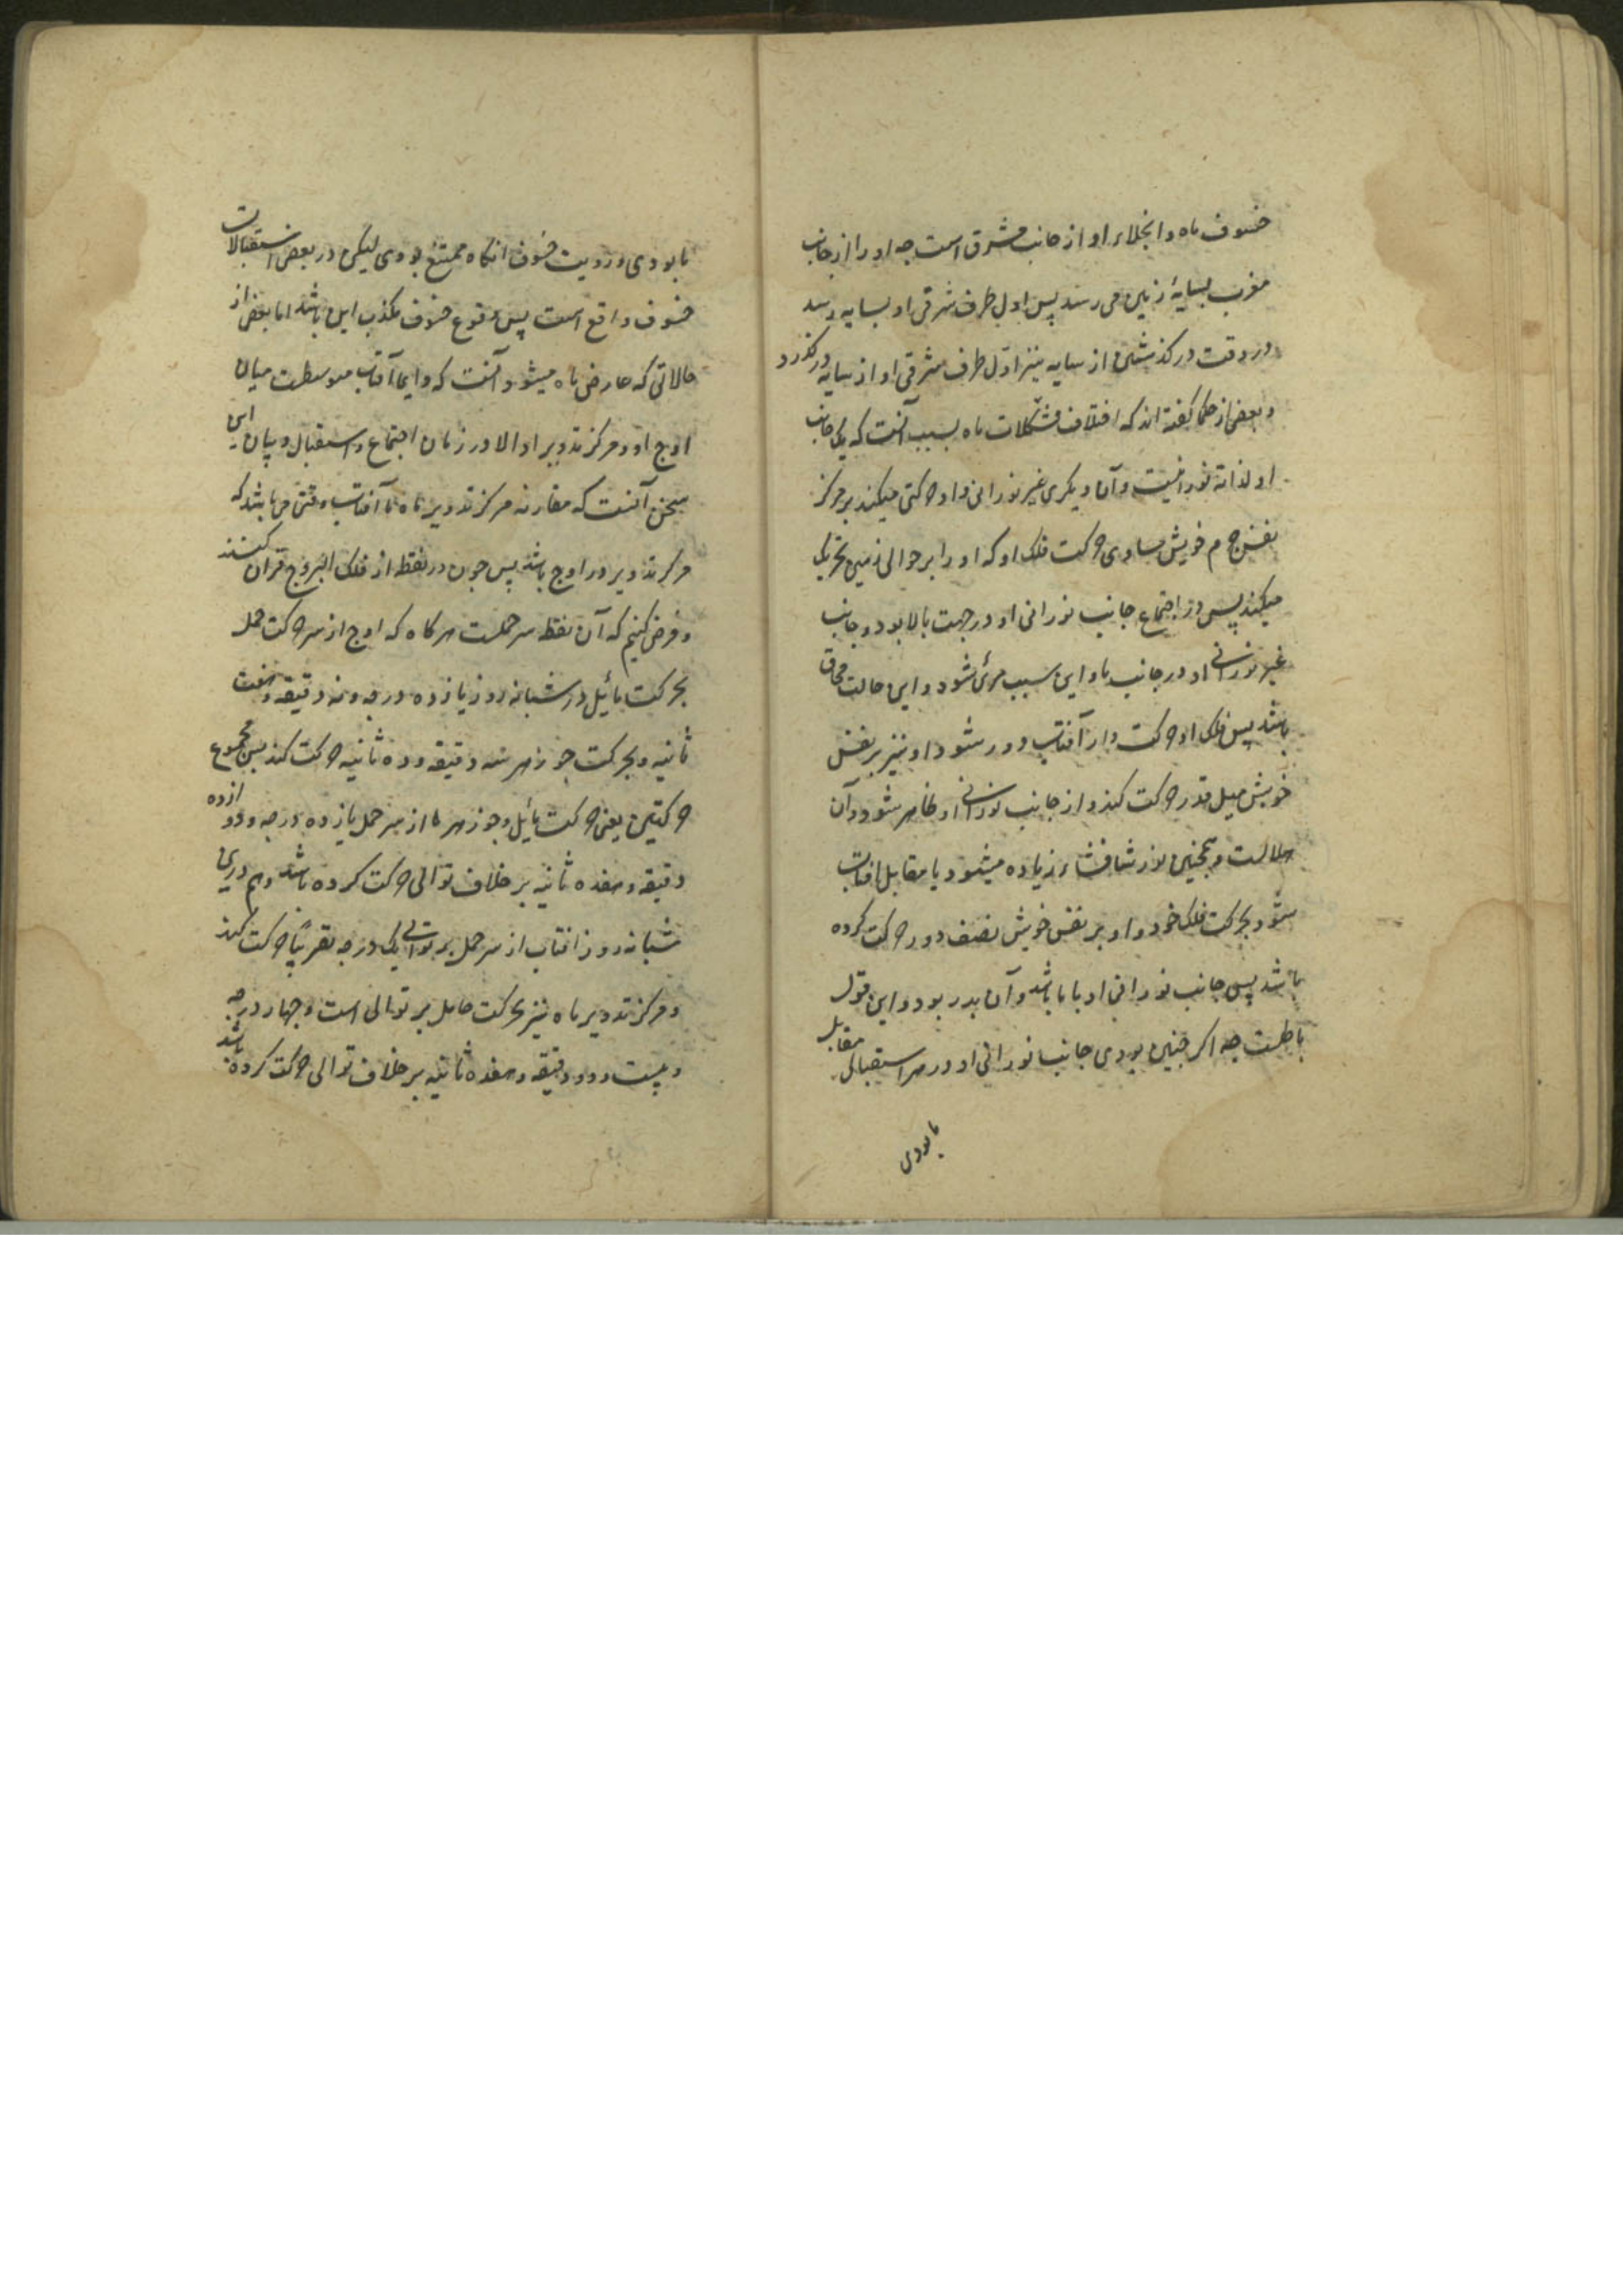 خسوف ماه و انجلاء او از جانب مشرق است چه او را از جانب
مغرب بسایهٔ زمین می رسد پس اول طرف شرقی او بسایه رسد
و در وقت در کذشتن از سایه نیز اول طرف مشرقی او از سایه درکذرد
و بعضی از حکما کفته اند که اختلاف تشکلات ماه بسبب آنست که یک جانب
او لذاته نورانیست و آن دیکری غیر نورانی و او حرکتی میکند بر مرکز
نفس جرم خویش مساوی حرکت فلک او که او را بر حوالی زمین تحریک
میکند پس در اجتماع جانب نورانی او در جهت بالا بود و جانب
غیر نورانی او در جانب ما و این سبب مرئی شود و این حالت محاق
باشد پس فلک او حرکت و از آفتاب دور شود او نیز بر نفس
خویش میل قدر حرکت کند و از جانب نورانی او ظاهر شود و آن
هلالست و همچنین نور شافشاء زیاده میشود یا مقابل افتاب
شود بحرکت فلک خود و او بر نفس خویش نصف دور حرکت کرده
باشد پس جانب نورانی او با ما باشد و آن بدر بود و این قول
باطلست چه اکر چنین بودی جانب نورانی او در هر استقبال مقابل
ما بودی
ما بودی و رویت خسوف انکاه ممتنع بودی لیکن در بعض استقبالات
خسوف واقع است پس وقوع خسوف مکذب این باشد اما بعضی از
حالاتی که عارض ماه میشود آنست که دایما آفتاب متوسطست میان
اوج او و مرکز تدویر او الا در زمان اجتماع و استقبال و بیان این
سخن آنست که مقارنه مرکز تدویر ماه با آفتاب وقتی می باشد که
مرکز تدویر در اوج باشد پس چون در نقطه از فلک البروج قران کنند
و فرض کنیم که آن نقطه سر حملست هرکاه که اوج از سر حرکت حمل
بحرکت مائیل در شبانه روز یازده درجه و نه دقیقه و هفت
ثانیه و بحرکت جوزهر سه دقیقه و ده ثانیه حرکت کند پس مجموع
حرکتین یعنی حرکت مائیل و جوزهر ما از سر حمل یازده درجه و دوازده
دقیقه و هفده ثانیه بر خلاف توالی حرکت کرده باشد و هم درین
شبانه روز افتاب از سر حمل بر توالی یک درجه تقریبًا حرکت کند
و مرکز تدویر ماه نیز بحرکت حامل بر توالی است و چهار درجه
و بیست و دو دقیقه و هفده ثانیه بر خلاف توالی حرکت کرده باشد